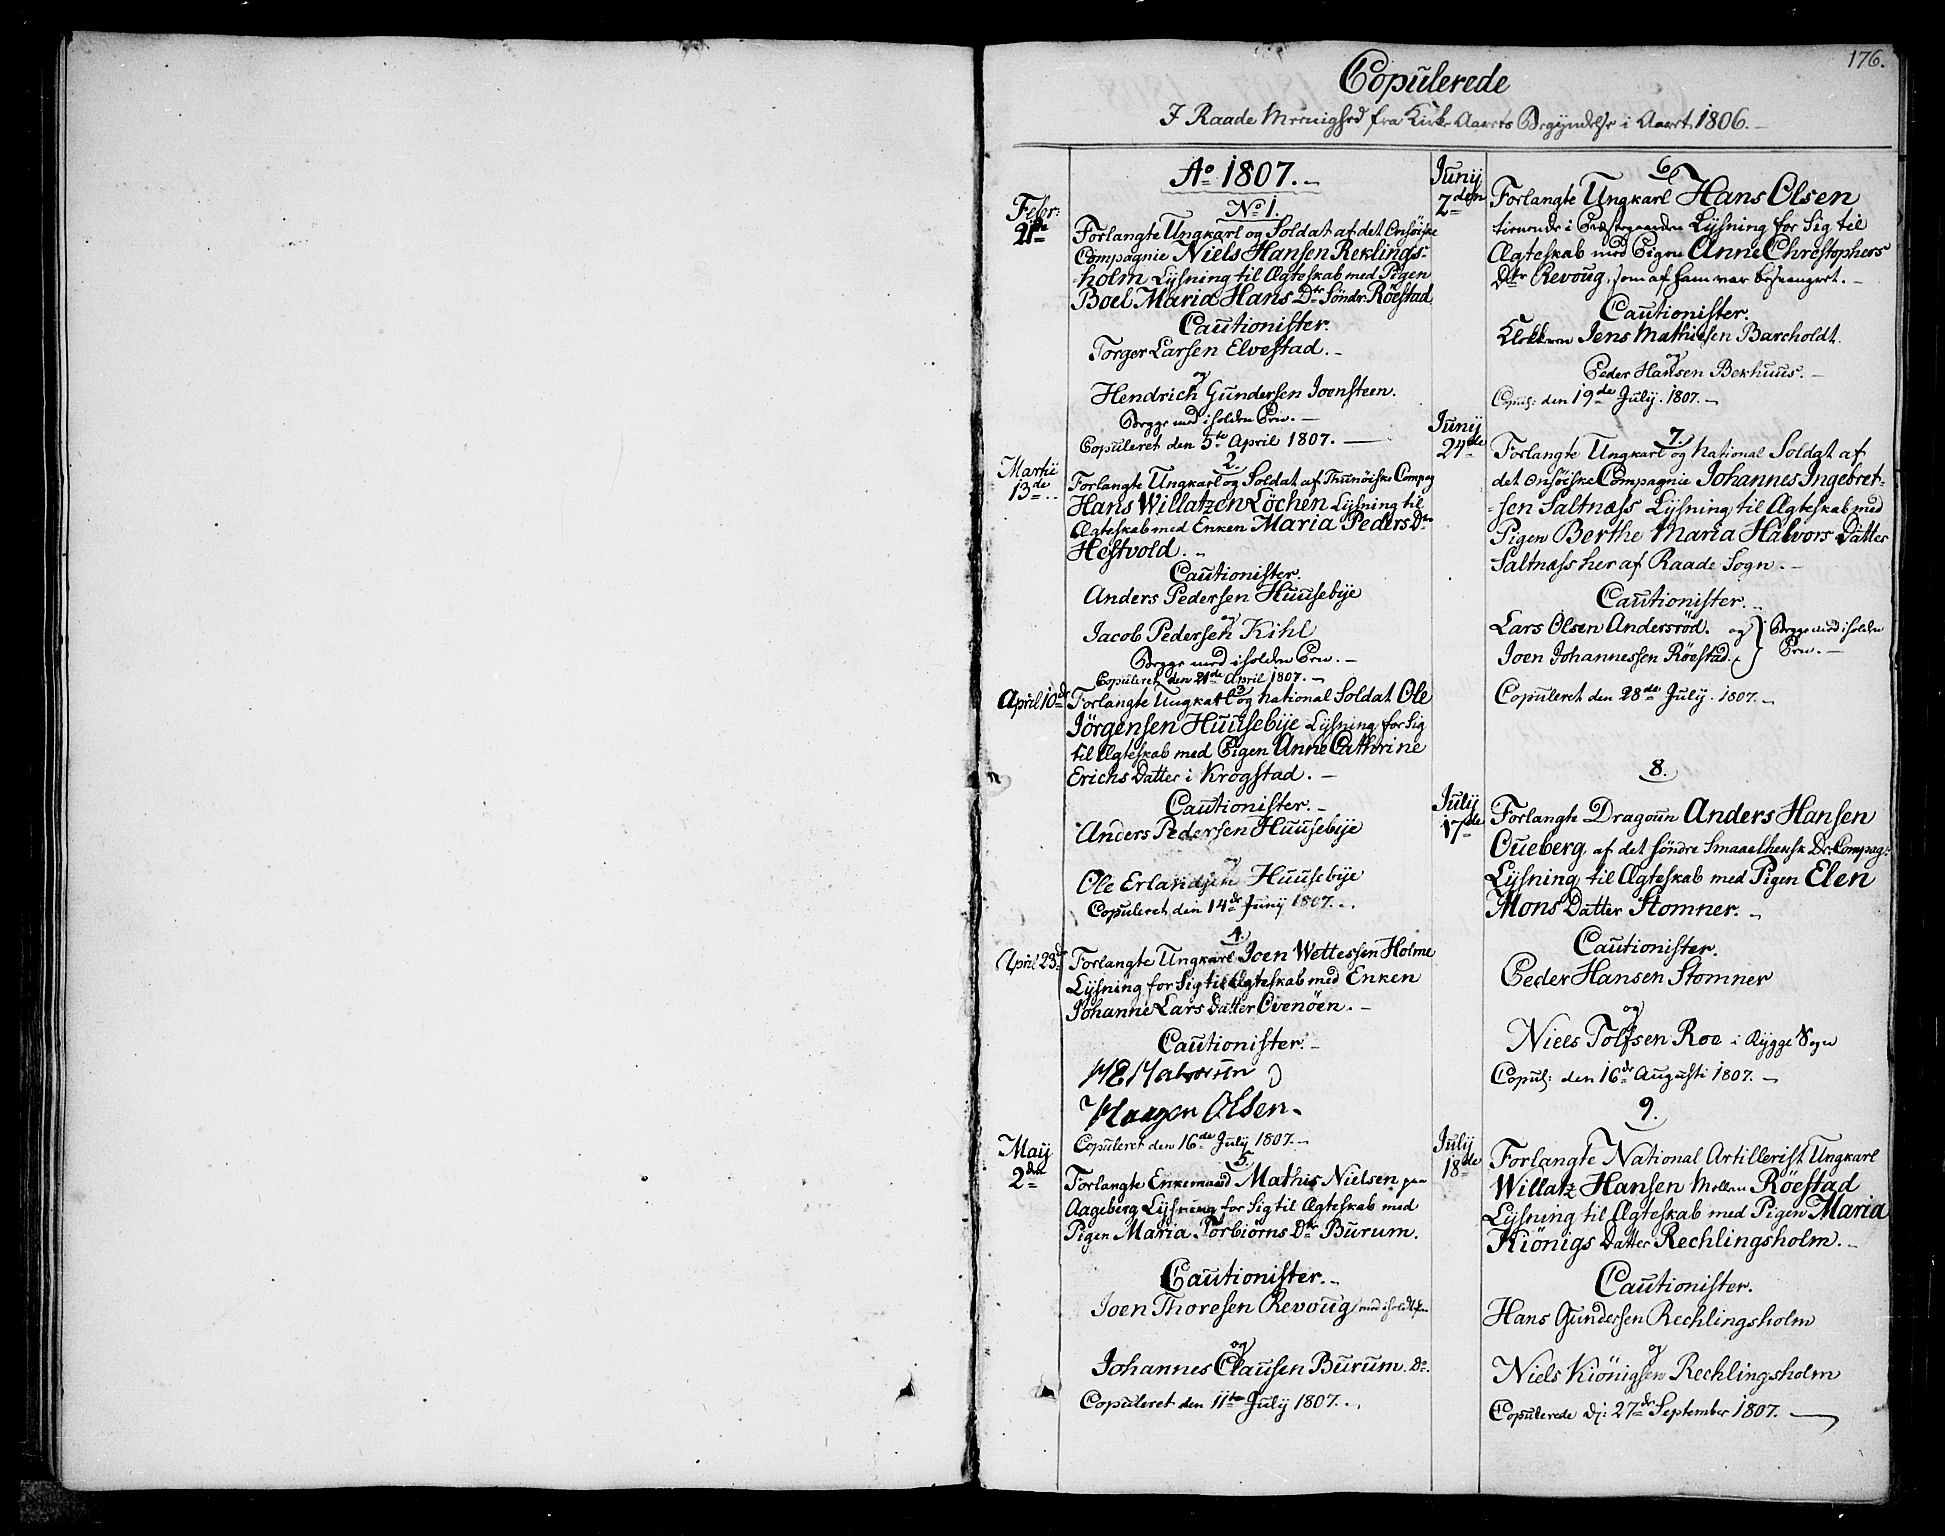 176.
Copulerede
I Raade Meenighed fra Kirke Aarets Begyndelse i Aaret 1806.
Ao 1807.
Febr: 21de
No 1.
Forlangte Ungkarl og Soldat af det Onsöiske
Compagnie Niels Hansen Reklings-
holm Lysning til Ægteskab med Pigen
Boel Maria Hans Dtr Söndr. Röestad
Cautionister.
Torger Larsen Elvestad.
og
Hendrich Gundersen Joensteen.
Begge med iholden Pen.
Copuleret den 5te April 1807.
Martii 13de
2.
Forlangte Ungkarl og Soldat af Thunöiske Compag
Hans Willatzen Löchen Lysning til
Ægteskab med Enken Maria Peders Dtr
Hestvold.
Cautionister.
Anders Pedersen Huusebije
og
Jacob Pedersen Kihl
Begge med iholden Pen.
Copuleret den 21de April 1807.
April 10de
3
Forlangte Ungkarl og national Soldat Ole
Jörgensen Huusebije Lysning for sig
til Ægteskab med Pigen Anne Cathrine
Erichs Datter i Krogstad.
Cautionister.
Anders Pedersen Huusebije
og
Ole Erlandsen Huusebije
Copuleret den 14de Junij 1807.
April 23d
4.
Forlangte Ungkarl Joen Wettessen Holme
Lysning for Sig til Ægteskab med Enken
Johanne Lars Datter Ovenöen.
Cautionister.
Haagen Olsen
Copuleret den 16de July 1807.
Maij 2den
5.
Forlangte Enkemand Mathis Nielsen paa
Aageberg Lysning for Sig til Ægteskab med
Pigen Maria Torbiörns Dtr Burum.
Cautionister.
Joen Thoresen Revoug med iholdt Pen
og
Johannes Clausen Burum. Do.
Copuleret den 11te July 1807.
Junij 2den
6
Forlangte Ungkarl Hans Olsen
tienende i Præstegaarden Lysning for Sig til
Ægteskab med Pigen Anne Chrestophers
Dtr Revoug, som af ham var besvangret.
Cautionister.
Klokkeren Jens Mathiesen Barcholdt.
og
Peder Hansen Bekhuus.
Copul: den 19de July. 1807.
Junij 24de
7.
Forlangte Ungkarl og national Soldat af
det Onsöiske Compagnie Johannes Ingebret-
sen Saltnæss Lysning til Ægteskab med
Pigen Berthe Maria Halvors Datter
Saltnæss her af Raade Sogn.
Cautionister.
Lars Olsen Andersröd. og
Joen Johannessen Röestad.
Begge med iholden
Pen.
Copuleret den 28de July. 1807.
8.
July 17de
Forlangte Dragoun Anders Hansen
Oueberg af det söndre Smaaelhensk Dr: Compag:
Lysning til Ægteskab med Pigen Elen
Mons Datter Stomner.
Cautionister.
Peder Hansen Stomner
og
Niels Tolfsen Roe i Rygge Sogn
Copul: den 16de Augusti 1807.
9.
July 18de
Forlangte National Artillerist Ungkarl
Willatz Hansen Mellem Röestad
Lysning til Ægteskab med Pigen Maria
Kiönigs Datter Rechlingsholm.
Cautionister.
Hans Gundersen Rechlingsholm
og
Niels Kiönigsen Rechlingsholm
Copulerede d: 27de September 1807.